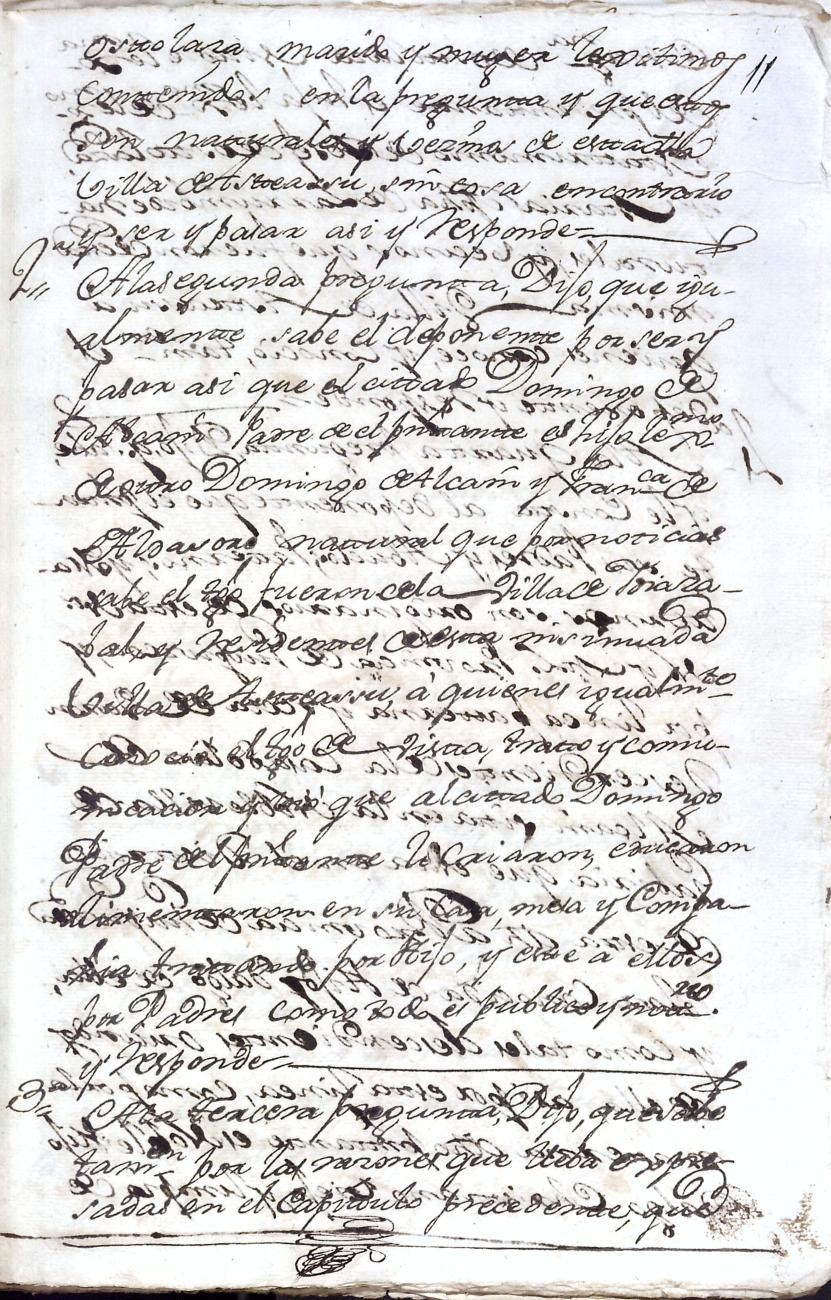 Ostolaza marido y muger lexitimos
Contenidos en la pregunta y que estos
Son naturales y vezinos de esta dha
Villa de Asteassu, sin cosa encontrario
y ser y pasar asi y responde
11
2a Ala segunda pregunta, Dijo, que igu-
almente, sabe el deponente por ser y
pasar asi que el cittado Domingo de
Alcain Padre de el pnttante es hijo lexmo
de otro Domingo de Alcain y Franca de
natural que por noticias
sabe el tgo fueron de la Villa de
y residentes de esta insinuada
Villa de Asteassu, á quienes igualmte
conocio el tgo de vista, tratto y comu-
nicacion y vio que al cittado Domingo
Padre del pnttante le criaron, educaron
alimentaron en su Casa, mesa y Compa-
ñia tratando por Hijo, y este a ellos
por Padres como todo es publico y notorio.
y responde
3a Ala tercera pregunta, Dijo, que sabe
tamn por las razones que lleba expre-
sadas en el Capitulo precedente, que